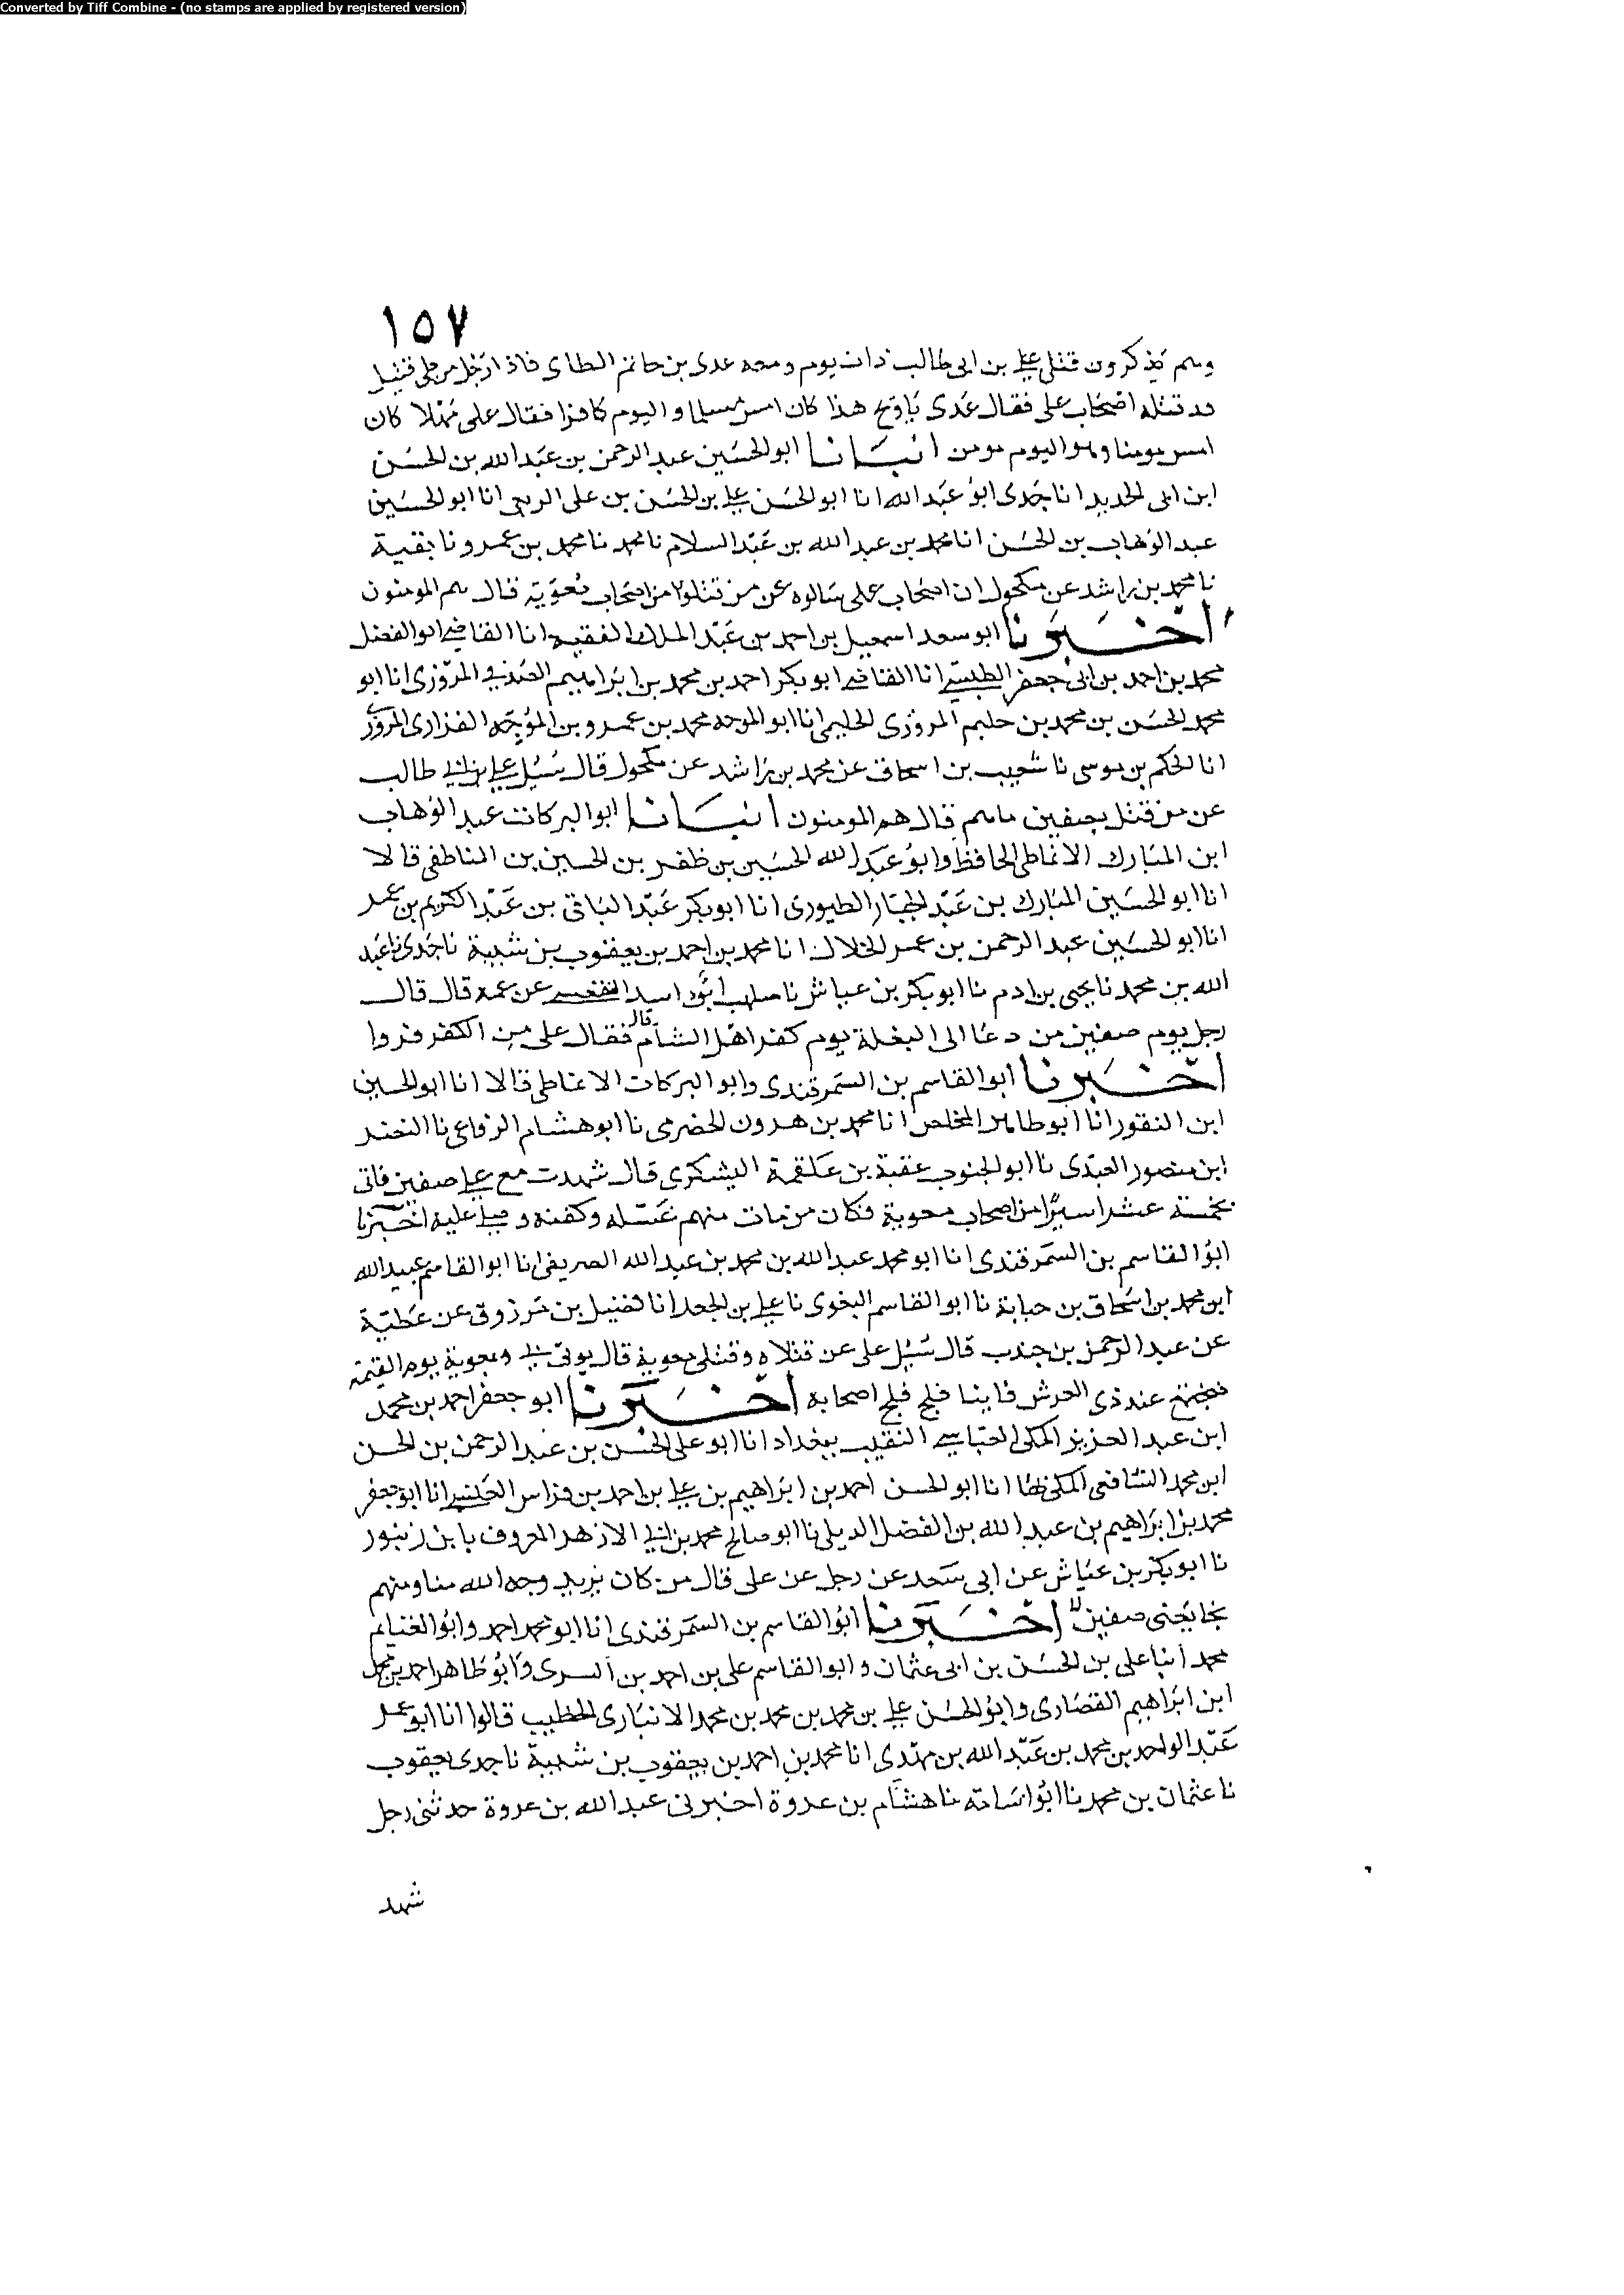 Converted by Tiff Combine - (no stamps are applied by registered version)
١٥٧
وهم يذكرون قتلى علي بن ابي طالب ذات يوم ومعه عدى بن حاتم الطاى فاذا رجل من طي قتيل
قد قتله اصحاب على فقال عدى ياويح هذا كان امس مسلما واليوم كافرا فقال على مهلا كان
امس مومنا وهو اليوم مومن انبانا ابو الحسين عبد الرحمن بن عبد الله بن الحسن
ابن ابى الحديد انا جدى ابو عبد الله انا ابو الحسن علي بن الحسن بن على الربعي انا ابو الحسين
عبد الوهاب بن الحسن انا محمد بن عبد الله بن عبد السلام نا محمد نا محمد بن عمرو نا بقية
نا محمد بن راشد عن مكحول ان اصحاب على سالوه عن من قتلوا من اصحاب معوية قال هم المومنون
اخبرنا ابو سعد اسمعيل بن احمد بن عبد الملك الفقيه انا القاضي ابو الفضل
محمد بن احمد بن ابى جعفر الطبسي انا القاضي ابو بكر احمد بن محمد بن ابراهيم الصدفي المروزى انا ابو
محمد الحسن بن محمد بن حليم المروزى الحليمى انا ابو الموجه محمد بن عمرو بن الموجه الفزارى المروزى
انا الحكم بن موسى نا شعيب بن اسحاق عن محمد بن راشد عن مكحول قال سئل علي بن ابي طالب
عن من قتل بصفين ماهم قال هم المومنون انبانا ابو البركات عبد الوهاب
ابن المبارك الانماطى الحافظ وابو عبد الله الحسين بن ظفر بن الحسين بن المناطفى قالا
انا ابو الحسين المبارك بن عبد الجبار الطيورى انا ابو بكر عبد الباقى بن عبد الكريم بن عمر
انا ابو الحسين عبد الرحمن بن عمر الخلال انا محمد بن احمد بن يعقوب بن شيبة نا جدى نا عبد
الله بن محمد نا يحيى بن ادم نا ابو بكر بن عياش نا صلهب ابو اسد الفقعسي عن عمه قال قال
رجل يوم صفين من دعا الى البغلة يوم كفر اهل الشام قال فقال على من الكفر فروا
اخبرنا ابو القاسم بن السمرقندى وابو البركات الانماطى قالا انا ابو الحسين
ابن النقور انا ابو طاهر المخلص انا محمد بن هرون الحضرمى نا ابو هشام الرفاعى نا النضر
ابن منصور العبدى نا ابو الجنوب عقبة بن علقمة اليشكرى قال شهدت مع علي صفين فاتى
بخمسة عشر اسيرا من اصحاب معوية فكان من مات منهم غسله وكفنه وصلى عليه اخبرنا
ابو القاسم بن السمرقندى انا ابو محمد عبد الله بن محمد بن عبد الله الصريفى انا ابو القاسم عبيد الله
ابن محمد بن اسحاق بن حبابة نا ابو القاسم البغوى نا علي بن الجعد انا فضيل بن مرزوق عن عطية
عن عبد الرحمن بن جندب قال سئل على عن قتلاه وقتلى معوية قال يوتى بي وبمعوية يوم القيمة
فنجتمع عند ذى العرش فاينا فلج فلج اصحابه اخبرنا ابو جعفر احمد بن محمد
ابن عبد العزيز المكى العباسي النقيب ببغداد انا ابو على الحسن بن عبد الرحمن بن الحسن
ابن محمد الشافعى المكى بها انا ابو الحسن احمد بن ابراهيم بن علي بن احمد بن فراس العبقسي انا ابو جعفر
محمد بن ابراهيم بن عبد الله بن الفضل الديبلى نا ابو صالح محمد بن ابي الازهر المعروف بابن زنبور
نا ابو بكر بن عياش عن ابى سعد عن رجل عن على قال من كان يريد وجه الله منا ومنهم
نجا يعنى صفين اخبرنا ابو القاسم بن السمرقندى انا ابو محمد احمد وابو الغنايم
محمد ابنا على بن الحسن بن ابى عثمان وابو القاسم على بن احمد بن السرى وابو طاهر احمد بن محمد
ابن ابراهيم القصارى وابو الحسن علي بن محمد بن محمد بن محمد الانبارى الخطيب قالوا انا ابو عمر
عبد الواحد بن محمد بن عبد الله بن مهدى انا محمد بن احمد بن يعقوب بن شيبة نا جدى يعقوب
نا عثمان بن محمد نا ابو اسامة نا هشام بن عروة اخبرنى عبد الله بن عروة حدثنى رجل
شهد